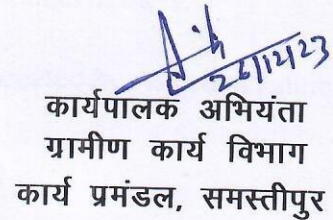 26/12/23
कार्यपालक अभियंता
ग्रामीण कार्य विभाग
कार्य प्रमंडल, समस्तीपुर